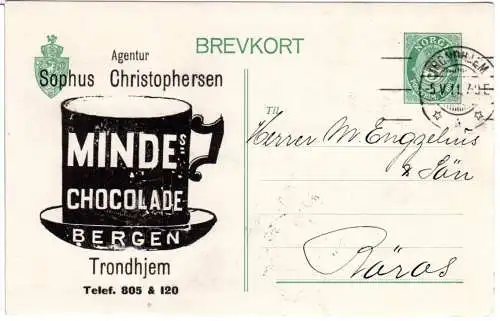 BREVKORT
Agentur
Sophus Christophersen
MINDES
CHOCOLADE
BERGEN
Trondhjem
Telef. 805 & 120
NORGE
TRONDHJEM
5 V 11
Til
Herrer M. Engzelius
& Sön
Röros